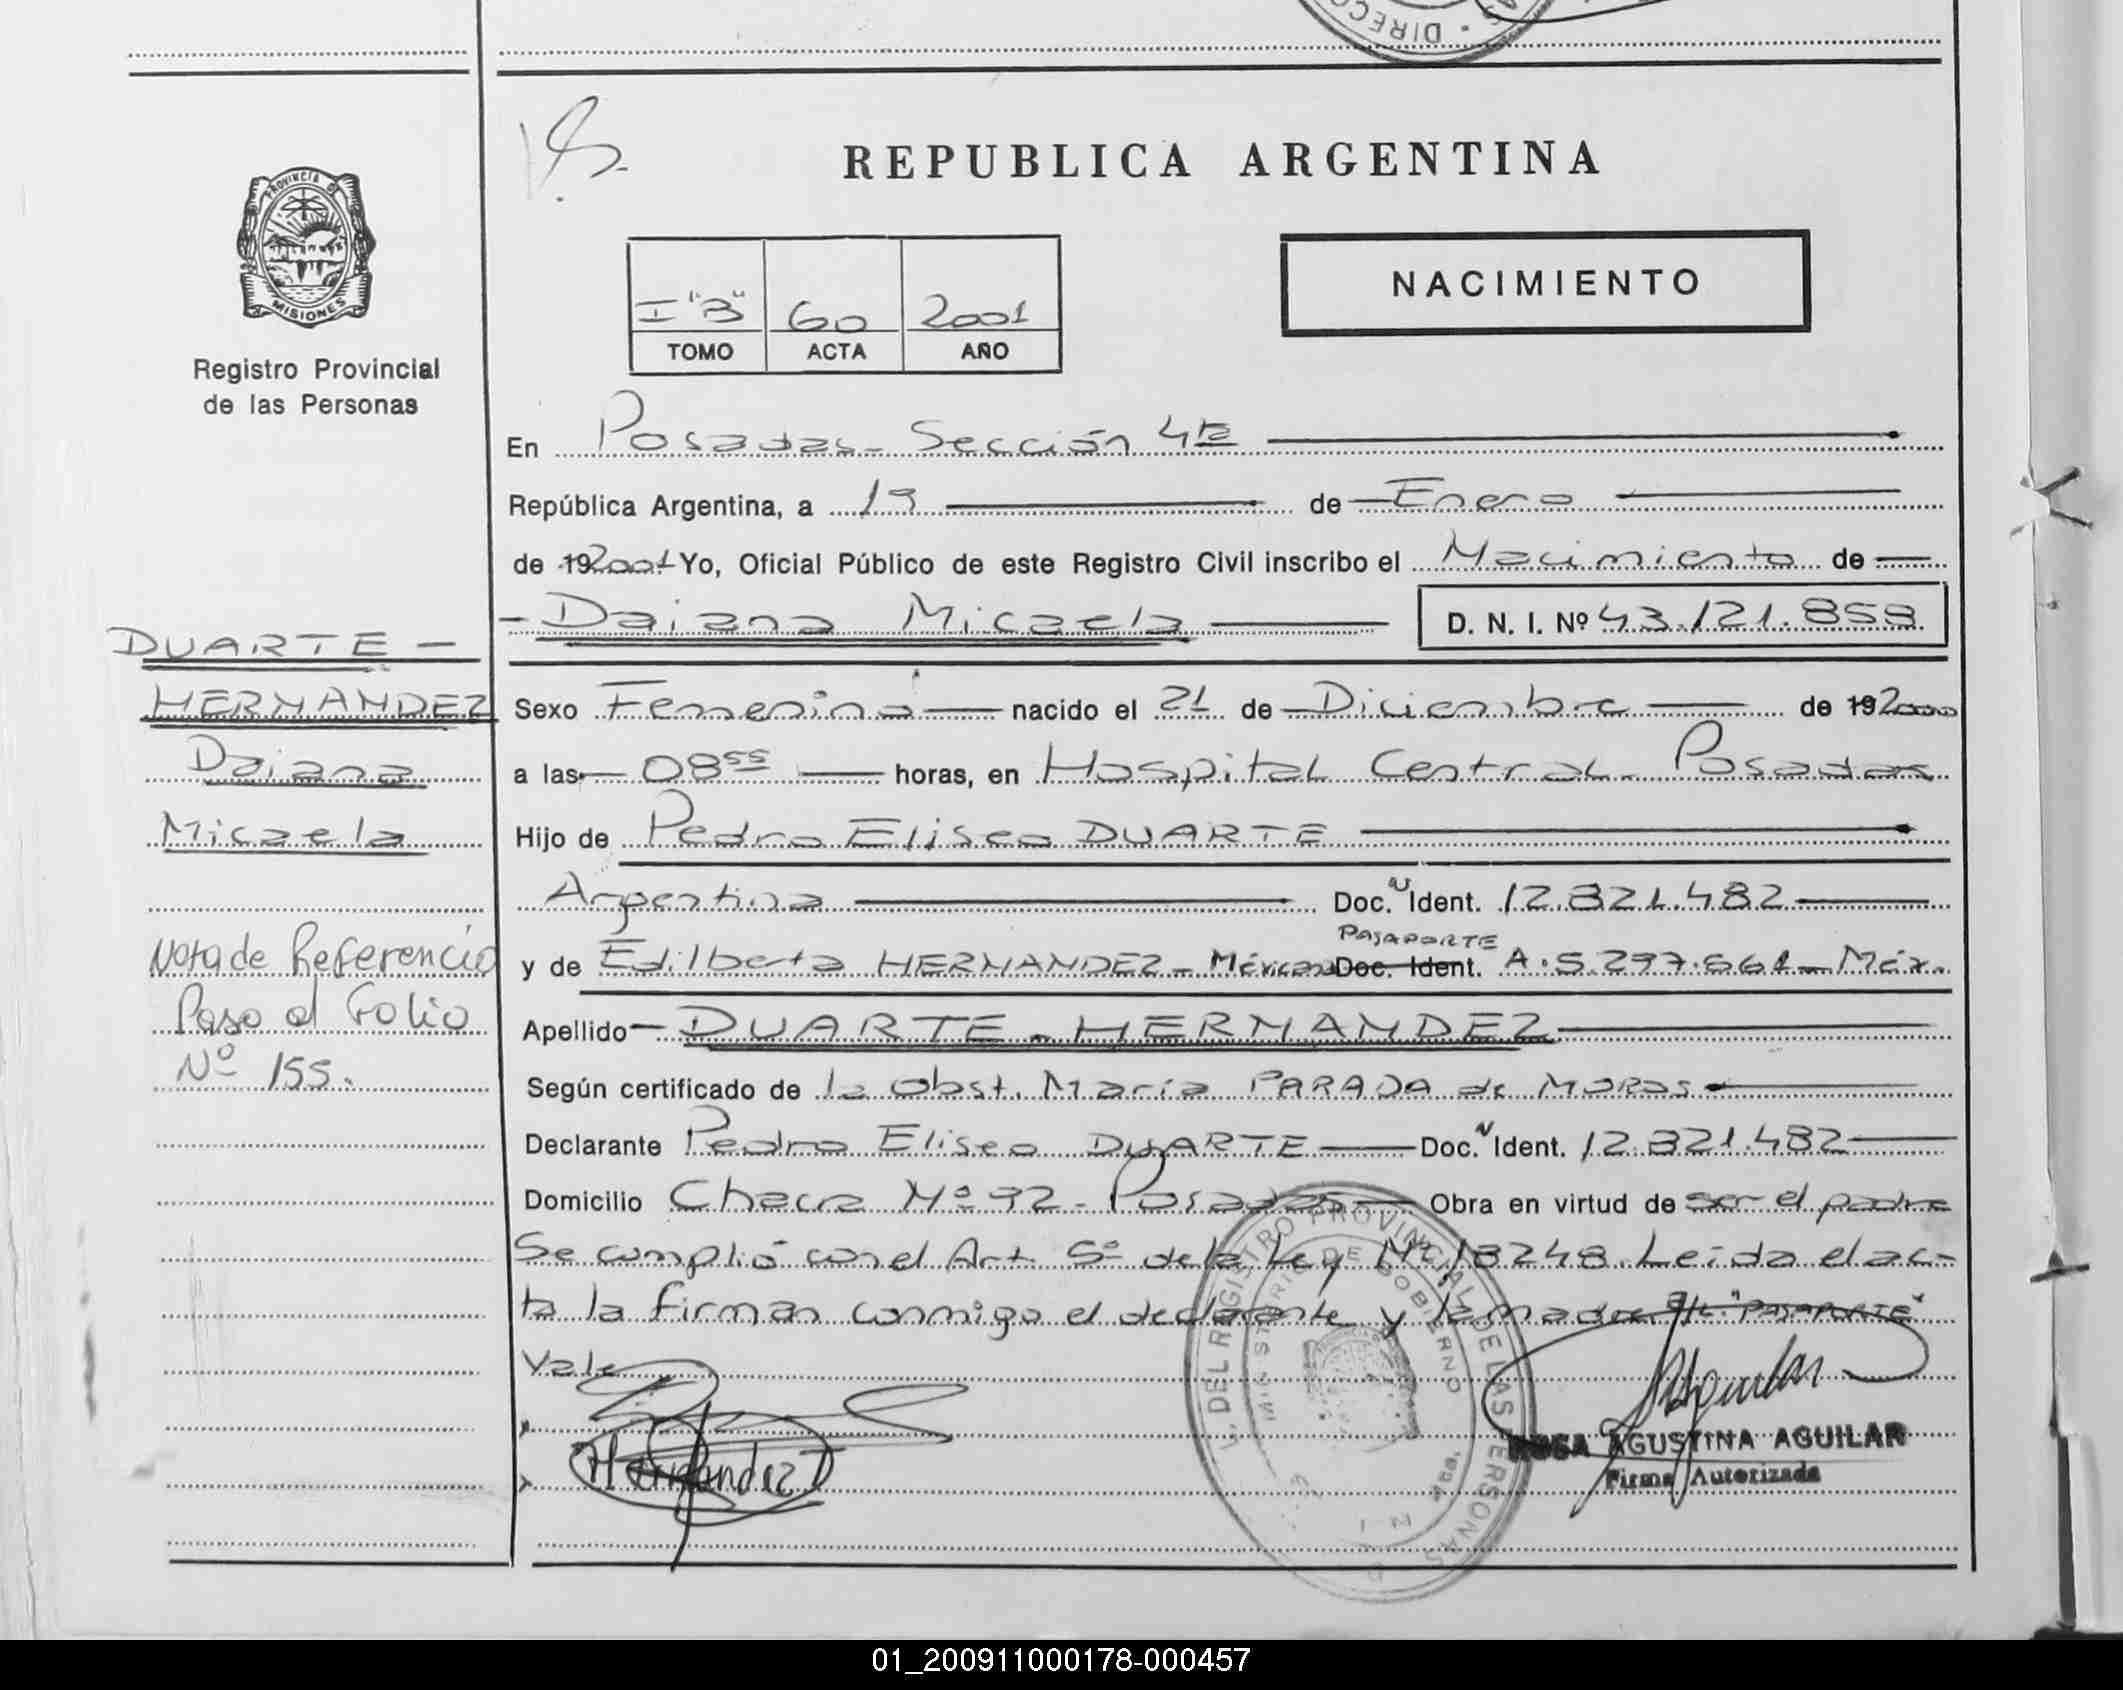 DIRECC
REPUBLICA ARGENTINA
PROVINCIA DE
MISIONES
Registro Provincial
de las Personas
I "B" 60 2001
TOMO ACTA AÑO
NACIMIENTO
En Posadas - Sección 4ta
República Argentina, a 19 de Enero
de 192001 Yo, Oficial Público de este Registro Civil inscribo el Nacimiento de
Daiana Micaela D. N. I. Nº 43.121.859
DUARTE -
HERNANDEZ
Daiana
Micaela
Nota de Referencia
Paso al Folio
Nº 155.
Sexo Femenino nacido el 21 de Diciembre de 192000
a las 08 55 horas, en Hospital Central - Posadas
Hijo de Pedro Eliseo DUARTE
Argentina Doc. N Ident. 12.821.482
PASAPORTE
y de Edilberta HERNANDEZ - Méxicana Doc. Ident. A.5.297.661 - Méx.
Apellido DUARTE - HERNANDEZ
Según certificado de la Obst. María PARADA de MORAS
Declarante Pedro Eliseo DUARTE Doc. N Ident. 12.821.482
Domicilio Chacra Nº 92 - Posadas Obra en virtud de ser el padre
Se cumplió con el Art 5º de la Ley Nº 18248. Leida el ac-
ta la firman conmigo el declarante y la madre E/L. "PASAPORTE"
Vale
Hernandez
DEL REGISTRO PROVINCIAL DE LAS PERSONAS
MINISTERIO DE GOBIERNO
ROSA AGUSTINA AGUILAR
Firma Autorizada
01_200911000178-000457